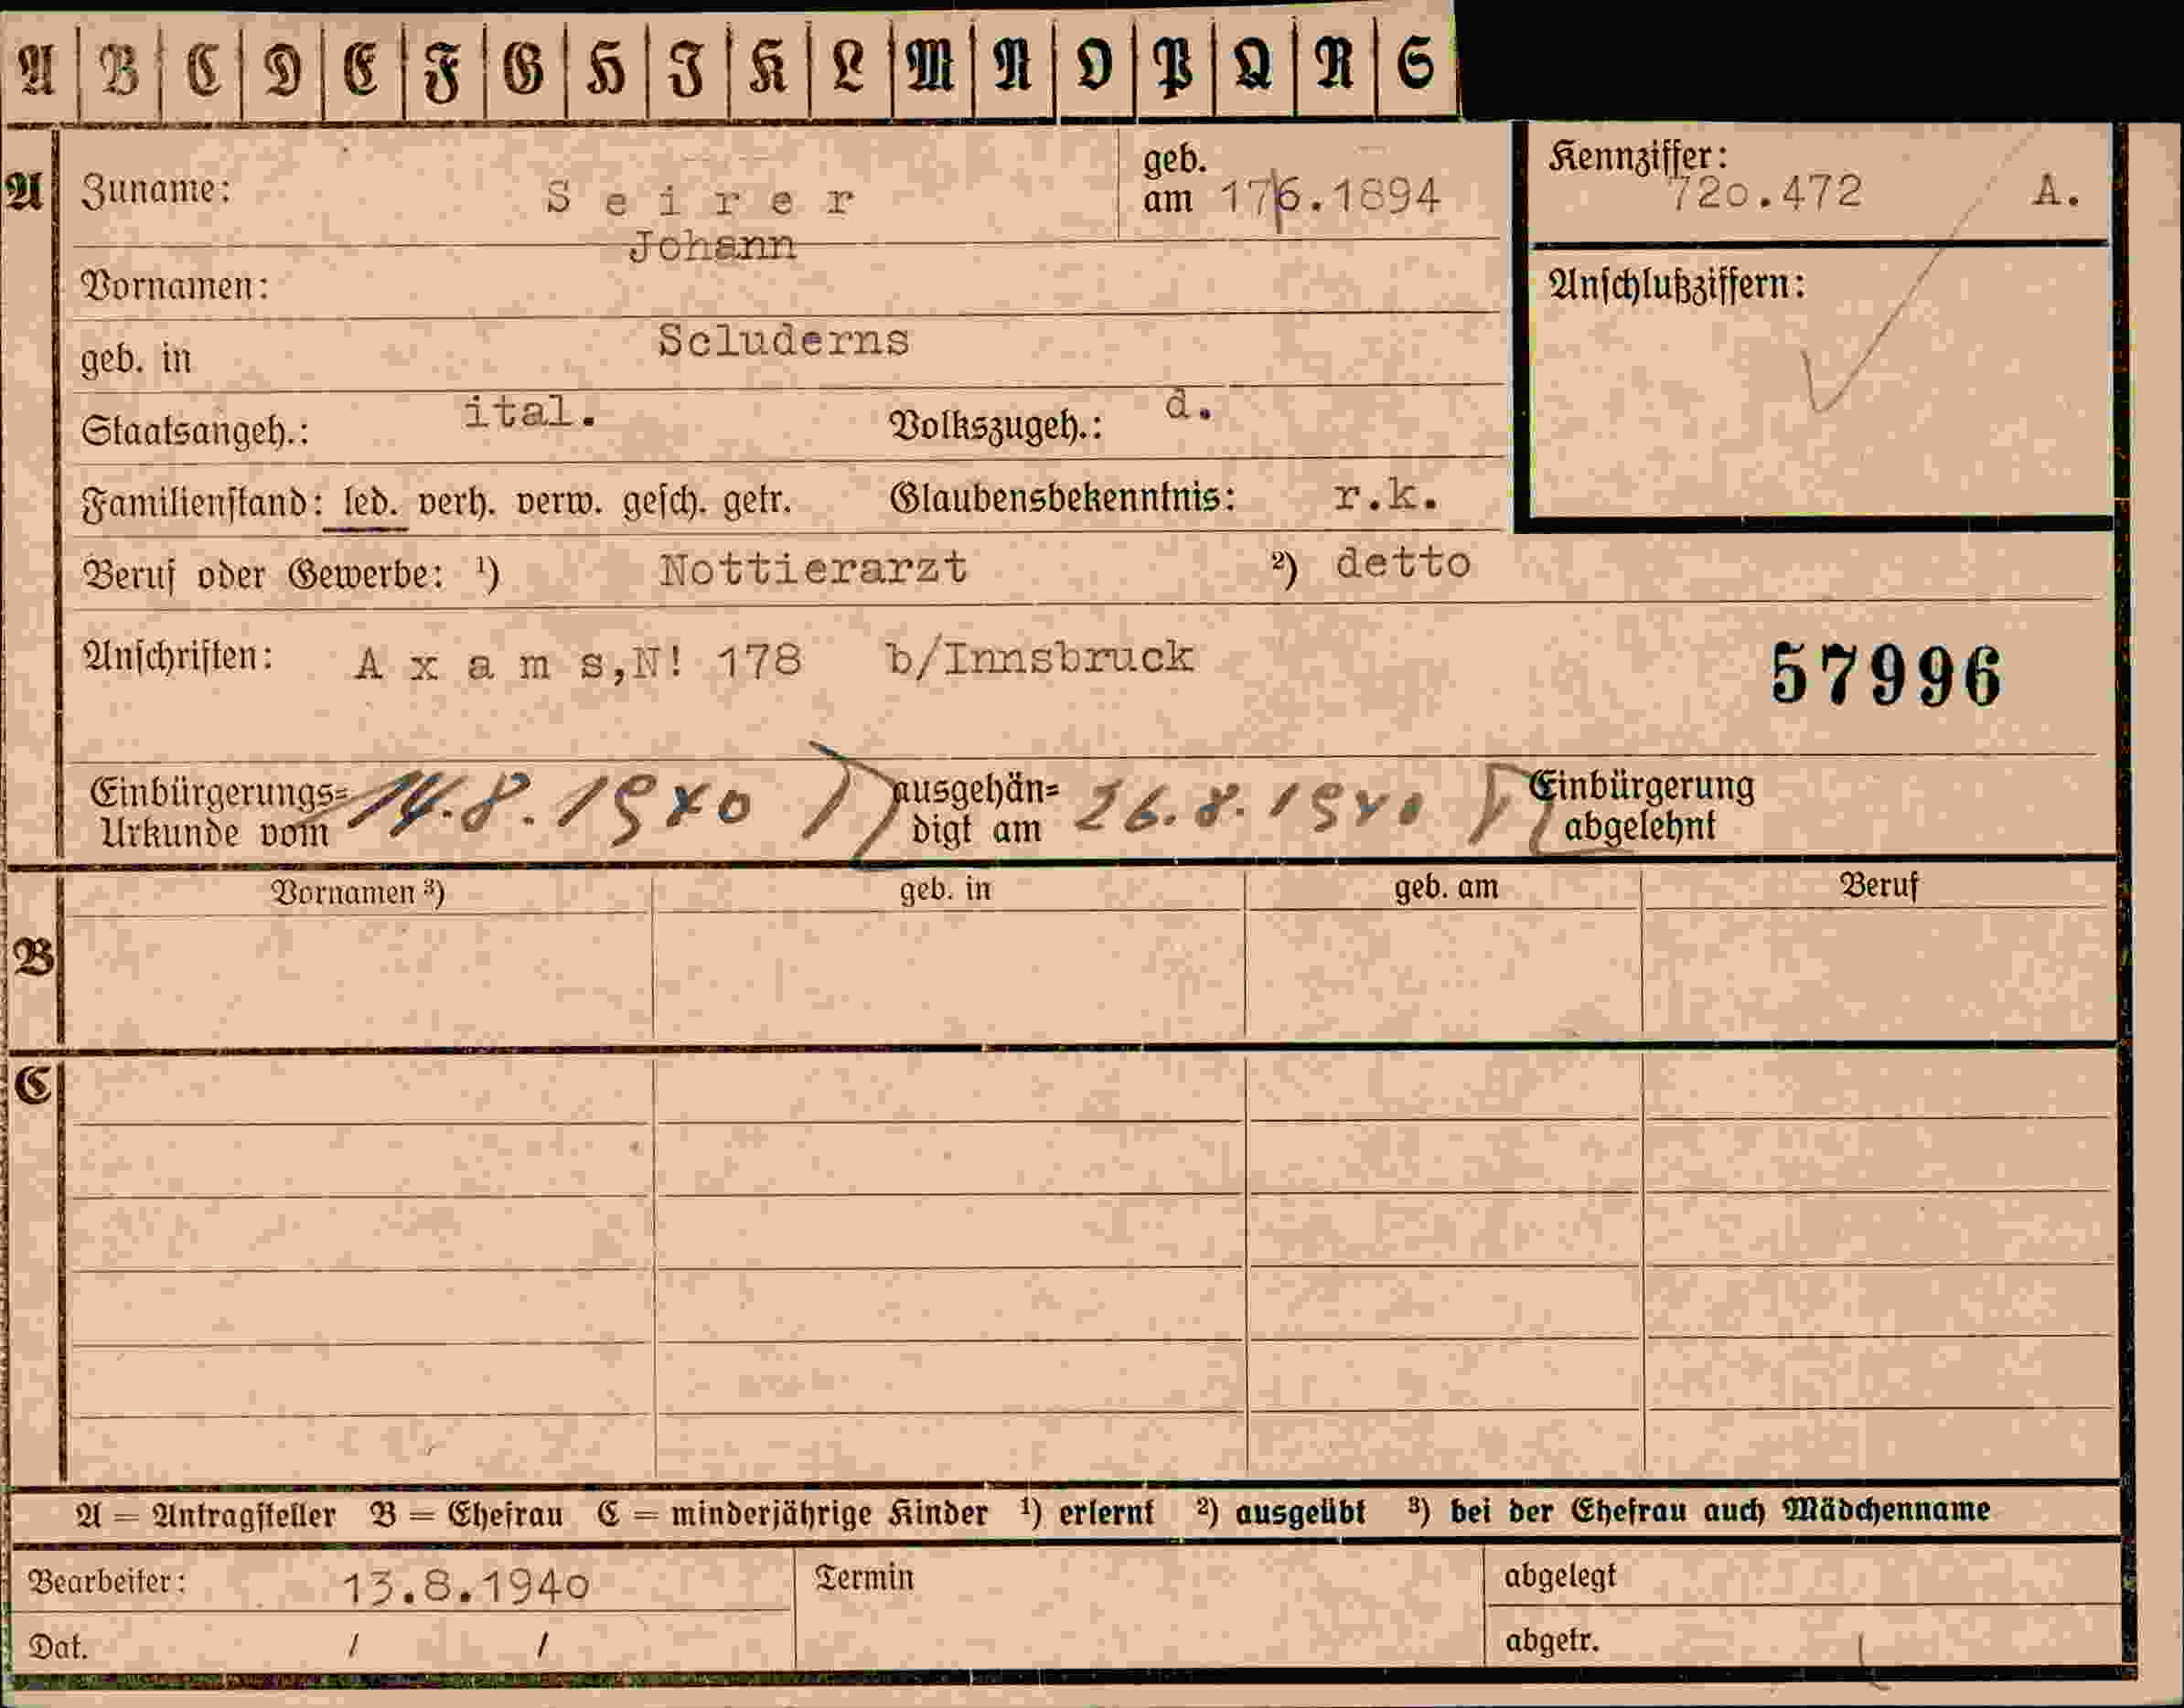 A B C D E F G H I K L M N O P Q R S
A Zuname: Seirer geb. am 17 6.1894 Kennziffer: 720.472 A.
Vornamen: Johann
Anschlußziffern:
geb. in Scluderns
Staatsangeh.: ital. Volkszugeh.: d.
Familienstand: led. verh. verw. gesch. getr. Glaubensbekenntnis: r.k.
Beruf oder Gewerbe: ¹) Nottierarzt ²) detto
Anschriften: Axams, N! 178 b/Innsbruck 57996
Einbürgerungs= ausgehän= Einbürgerung
Urkunde vom 14.8.1940 digt am 26.8.1940 abgelehnt
Vornamen ³) geb. in geb. am Beruf
B
C
A = Antragsteller B = Ehefrau C = minderjährige Kinder ¹) erlernt ²) ausgeübt ³) bei der Ehefrau auch Mädchenname
Bearbeiter: 13.8.1940 Termin abgelegt
Dat. / / abgetr.